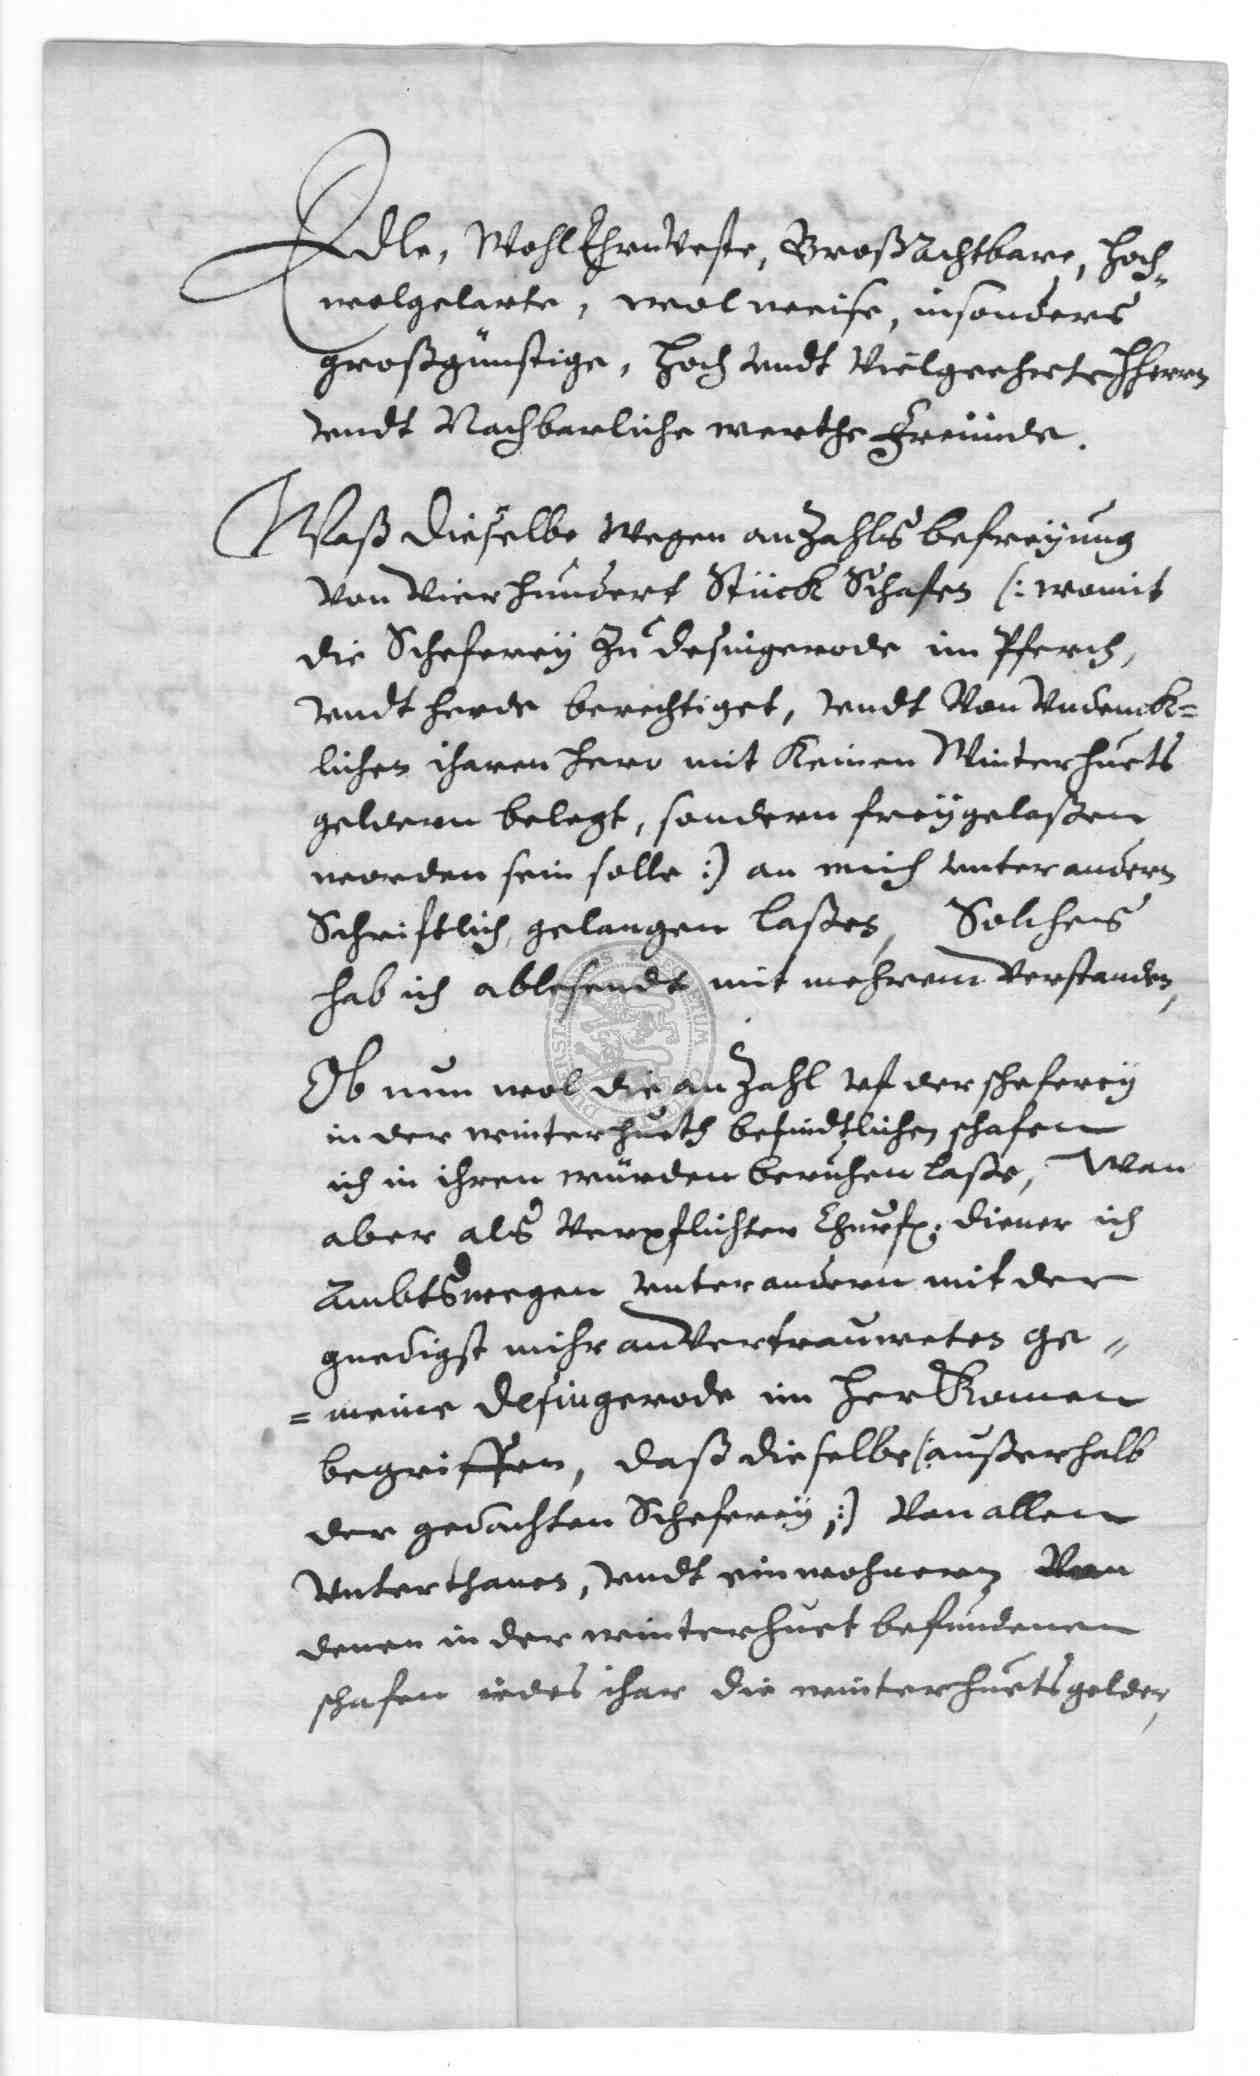 Edle, WohlEhrnVeste, GroßAchtbare, Hoch-
wolgelarte, wolweise, insonders
großgünstige, Hoch vndt Vielgeehrte HHerrn
vndt Nachbarliche werthe Freünde.
Waß dieselbe wegen anZahls befreÿung
von vierhundert Stück Schafen (: womit
die Scheferey zu desingerode im Pferch,
vndt herde berechtiget, vndt von vndenck=
lichen iharen hero mit keinen Winterhuets
geldern belegt, sondern freÿgelaßen
worden sein solle :) an mich unter andern
Schriftlich gelangen laßen, Solches
hab ich ablesendt mit mehrem verstanden,
Ob nun wol die anZahl vf der scheferey
in der winterhueth befindtlichen schafen
ich in ihren würden beruhen laße, Wan
aber als verpflichter Churfr. diener ich
Ambtswegen unter andern mit der
gnedigst mihr anvertrauweten ge"
=meine Desingerode im herkomen
begriffen, daß dieselbe (: außerhalb
der gedachten Scheferey :) von allen
vnterthanen, vndt einwohnern von
denen in der winterhuet befundenen
schafen iedes ihar die winterhuetsgelder,